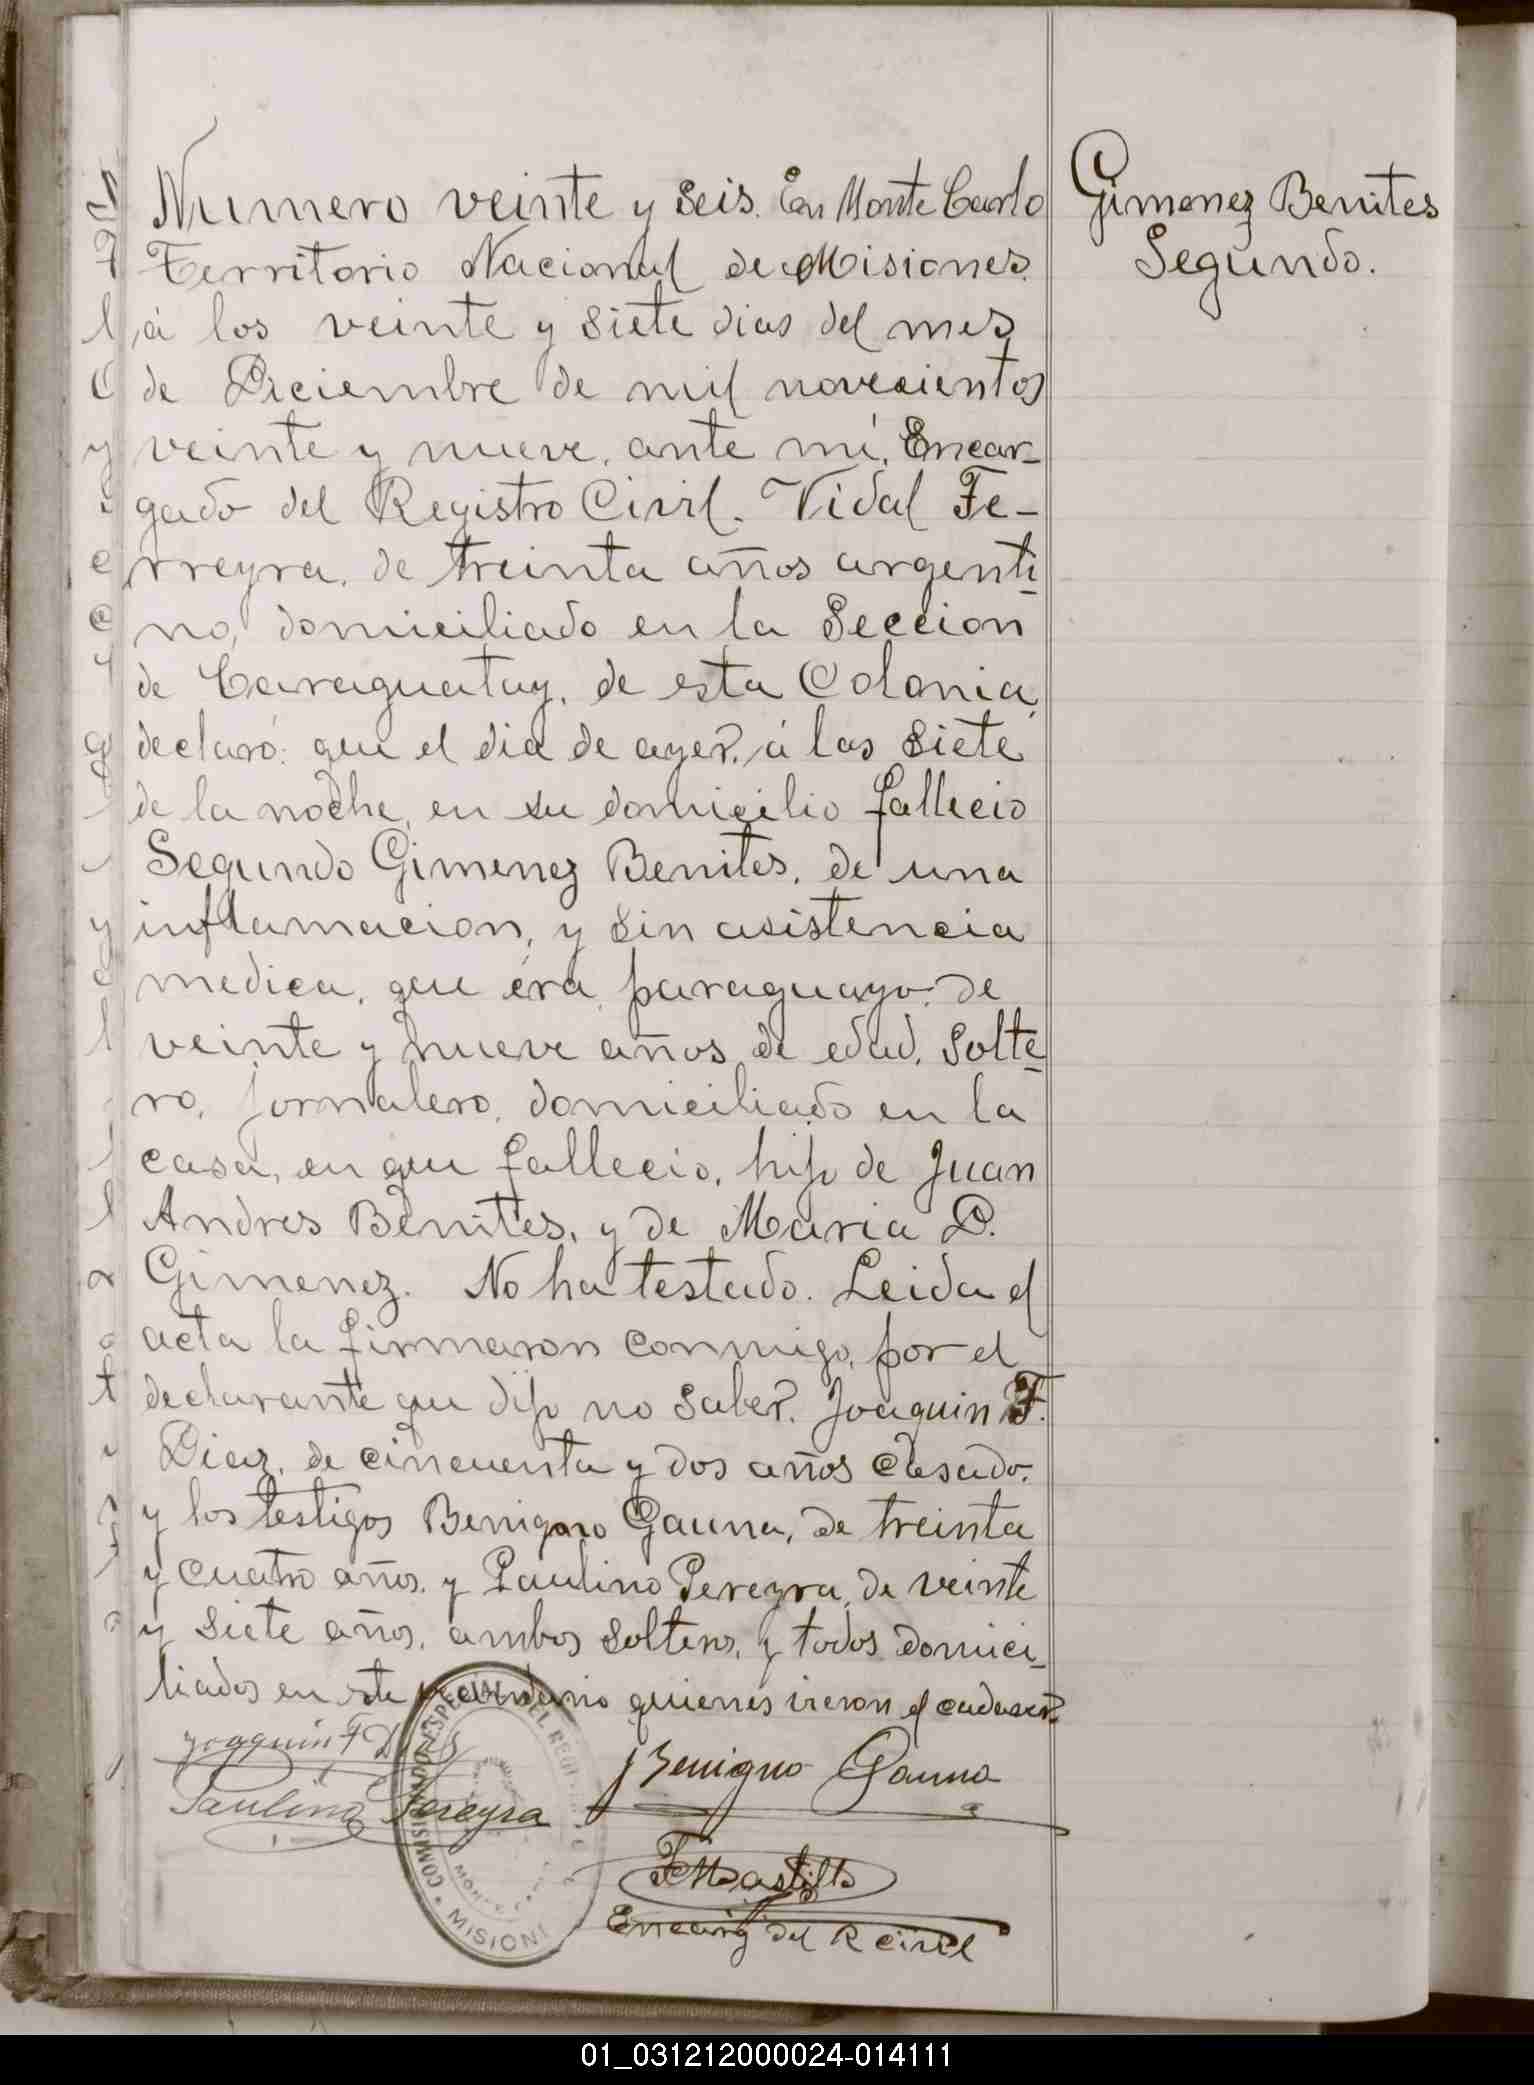 Numero veinte y seis. En Monte Carlo
Territorio Nacional de Misiones
á los veinte y siete dias del mes
de Diciembre de mil novecientos
veinte y nueve, ante mí, Encar-
gado del Registro Civil. Vidal Fe-
rreyra, de treinta años argenti-
no, domiciliado en la Seccion
de Caraguatay, de esta Colonia,
declaró: que el dia de ayer, á las siete
de la noche, en su domicilio fallecio
Segundo Gimenez Benites, de una
inflamacion, y sin asistencia
medica, que éra paraguayo, de
veinte y nueve años de edad, Solte-
ro, jornalero, domiciliado en la
casa, en que fallecio, hijo de Juan
Andres Benites, y de Maria D.
Gimenez. No ha testado. Leida el
acta la firmaron conmigo, por el
declarante que dijo no saber. Joaquin F.
Diaz, de cincuenta y dos años Casado.
y los testigos Benigno Gauna, de treinta
y cuatro años, y Paulino Pereyra, de veinte
y siete años, ambos solteros, y todos domici-
liados en este quienes vieron el cadaver.
Joaquin F D
Benigno Gauna
Paulino Pereyra
Encarg del R Civil
COMISARIADO ESPECIAL DEL
MISION
Gimenez Benites
Segundo.
01_031212000024-014111